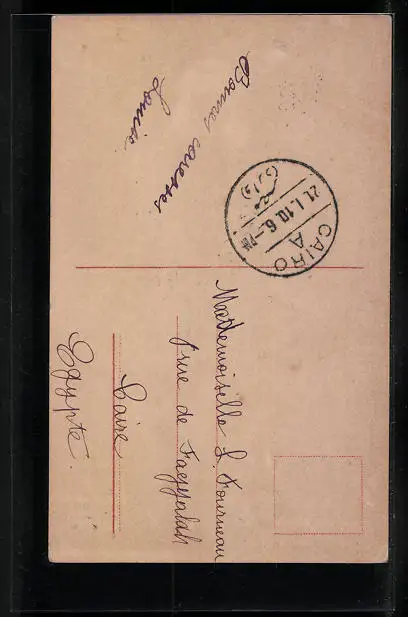 Bonnes caresses
Louise
CAIRO
A
21.I.10.6-PM
Mademoiselle L. Fourneau
rue de Faggalah
Caire
Egypte.